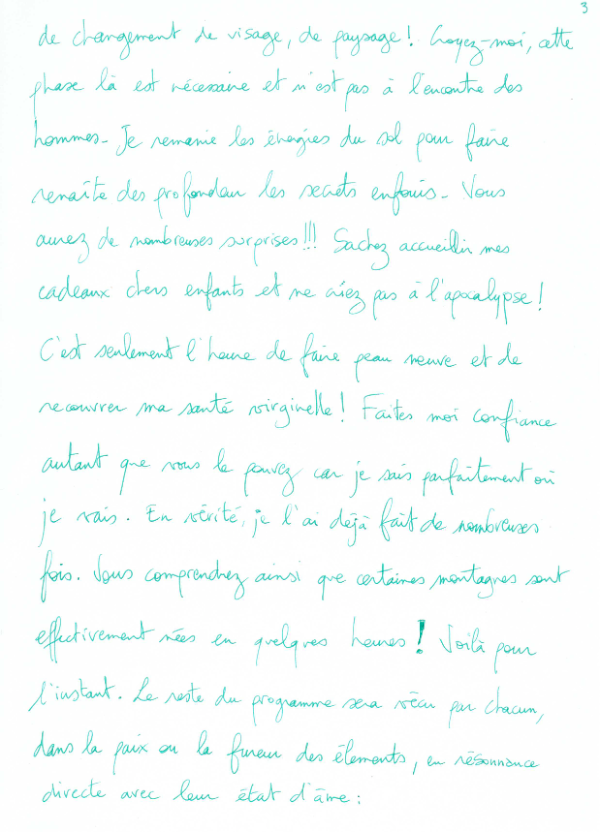 3
de changement de visage, de paysage! Croyez-moi, cette
phase là est nécessaire et n'est pas à l'encontre des
hommes. Je remanie les énergies du sol pour faire
renaître des profondeurs les secrets enfouis. Vous
aurez de nombreuses surprises!!! Sachez accueillir mes
cadeaux chers enfants et ne criez pas à l'apocalypse!
C'est seulement l'heure de faire peau neuve et de
recouvrer ma santé virginelle! Faites moi confiance
autant que vous le pouvez car je sais parfaitement où
je vais. En vérité, je l'ai déjà fait de nombreuses
fois. Vous comprendrez ainsi que certaines montagnes sont
effectivement nées en quelques heures! Voilà pour
l'instant. Le reste du programme sera vécu par chacun,
dans la paix ou la fureur des élements, en résonnance
directe avec leur état d'âme: